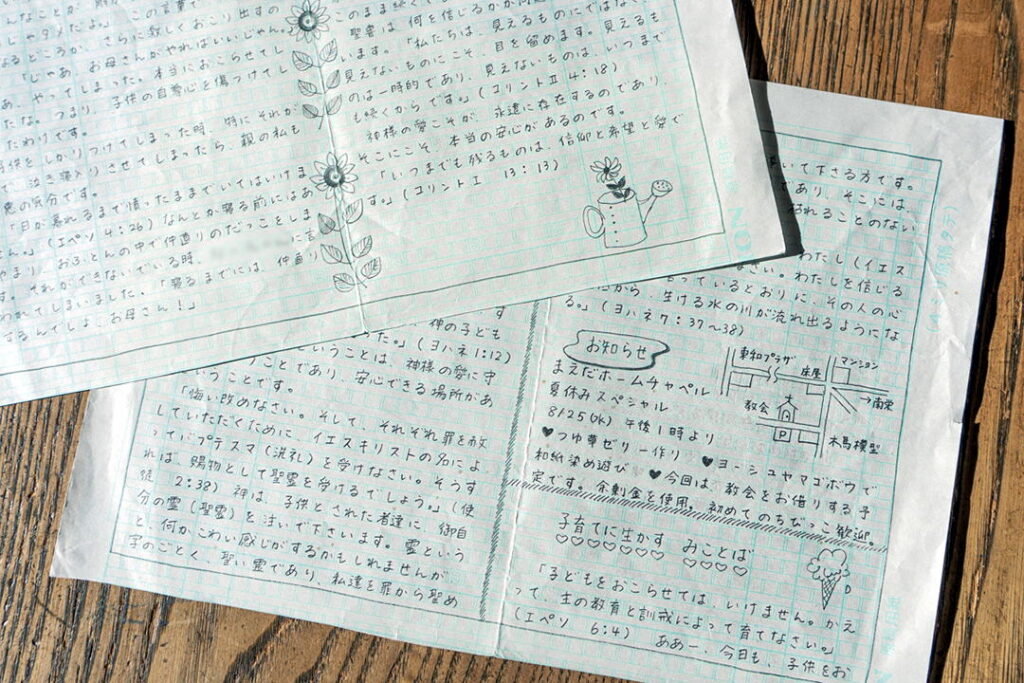 じゃダメだ
なるところか、さらに激しくおこり出すの
「じゃあ、お母さんがやればいいじゃん。」
あ、やってしまった。本当におこらせてし
たな。つまり、子供の自尊心を傷つけてし
たわけです。
子供をしかりつけてしまった時、特にそれが
で、泣き寝入りさせてしまったら、親の私も
悪の気分です。
「日が暮れるまで憤ったままでいてはいけま
。」(エペソ 4:26)なんとか寝る前にはあ
やまり、おふとんの中で仲直りのだっこをしま
す。それができないでいる時、
に言
われてしまいました。「寝るまでには、仲直り
するんでしょ、お母さん!」
聖書は、何を信じるかが問題
います。「私たちは、見えるものにではなく、
見えないものにこそ、目を留めます。見えるも
のは一時的であり、見えないものは、いつまで
も続くからです。」(コリントⅡ 4:18)
神様の愛こそが、永遠に存在するのであり
そこにこそ、本当の安心があるのです。
「いつまでも残るものは、信仰と希望と愛で
す。」(コリントⅠ 13:13)
NO
神の子ども
た。」(ヨハネ1:12)
ということは、神様の愛に守
ことであり、安心できる場所があ
いうことです。
「悔い改めなさい。そして、それぞれ罪を赦
していただくために、イエスキリストの名によ
ってバプテスマ(洗礼)を受けなさい。そうす
れば、賜物として聖霊を受けるでしょう。」(使
徒 2:38)神は、子供とされた者達に、御自
分の霊(聖霊)を注いで下さいます。霊という
と、何かこわい感じがするかもしれませんが
字のごとく、聖い霊であり、私達を罪から聖め
いて下さる方です。
あり、そこには
われることのない
わたし(イエス
さい。わたしを信じる
っているとおりに、その人の心
から、生ける水の川が流れ出るようにな
る。」(ヨハネ7:37〜38)
お知らせ
まえだホームチャペル
夏休みスペシャル
8/25(水)午後1時より
♥つゆ草ゼリー作り
♥ヨーシュヤマゴボウで
和紙染め遊び
♥今回は、教会をお借りする予
定です。余剰金を使用。初めてのちびっこ歓迎。
東和プラザ
座屋
マンション
→南栄
教会
P
木馬模型
子育てに生かす みことば
♡♡♡♡♡♡♡ ♡♡♡♡
「子どもをおこらせては、いけません。かえ
って、主の教育と訓戒によって育てなさい。」
(エペソ 6:4) ああー、今日も、子供をお